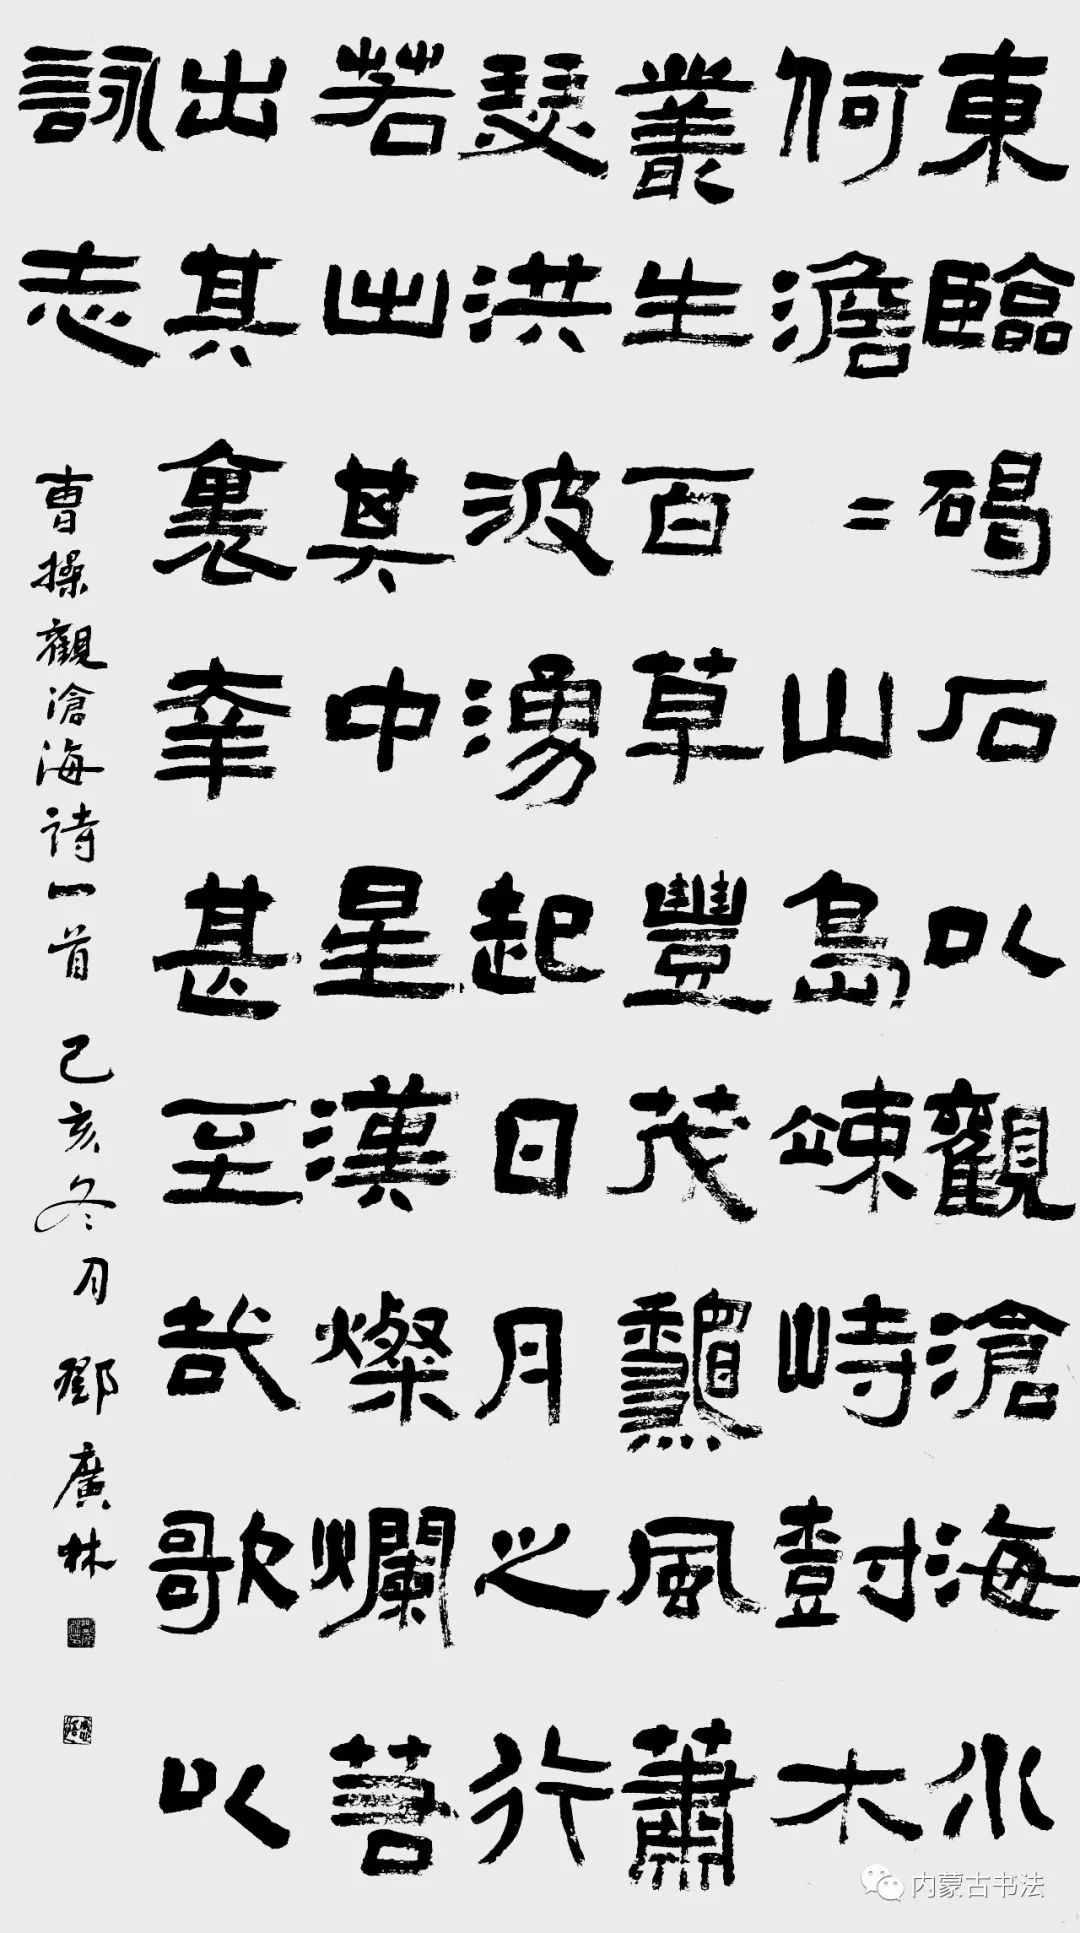 東臨碣石以觀滄海水
何澹〻山島竦峙樹木
叢生百草豐茂龝風蕭
瑟洪波湧起日月之行
若出其中星漢燦爛若
出其裏幸甚至哉歌以
詠志
曹操觀滄海詩一首 己亥冬月 鄧廣林
内蒙古书法